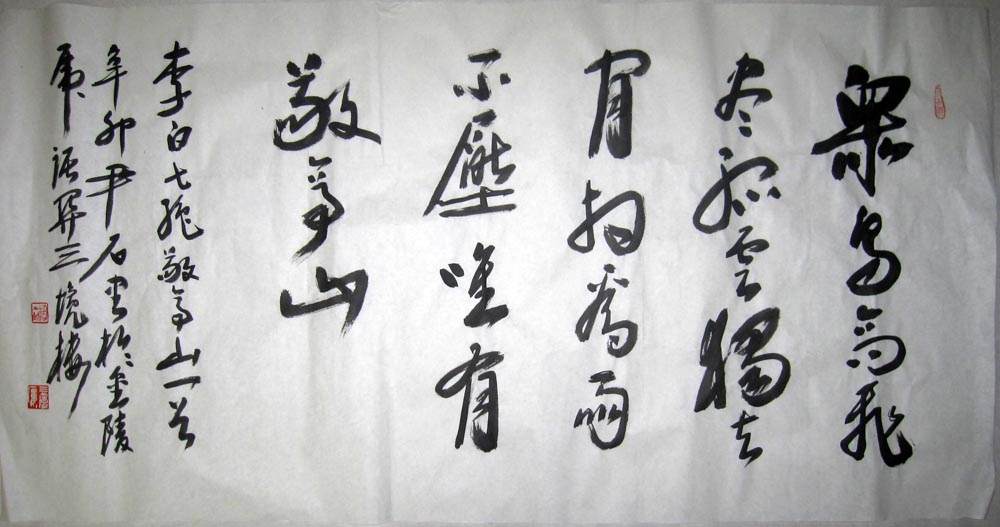 眾鳥高飛
尽孤雲獨去
閒相看兩
不壓唯有
敬亭山
李白七絕敬亭山一首
辛卯尹石書於金陵
虎踞関三境樓